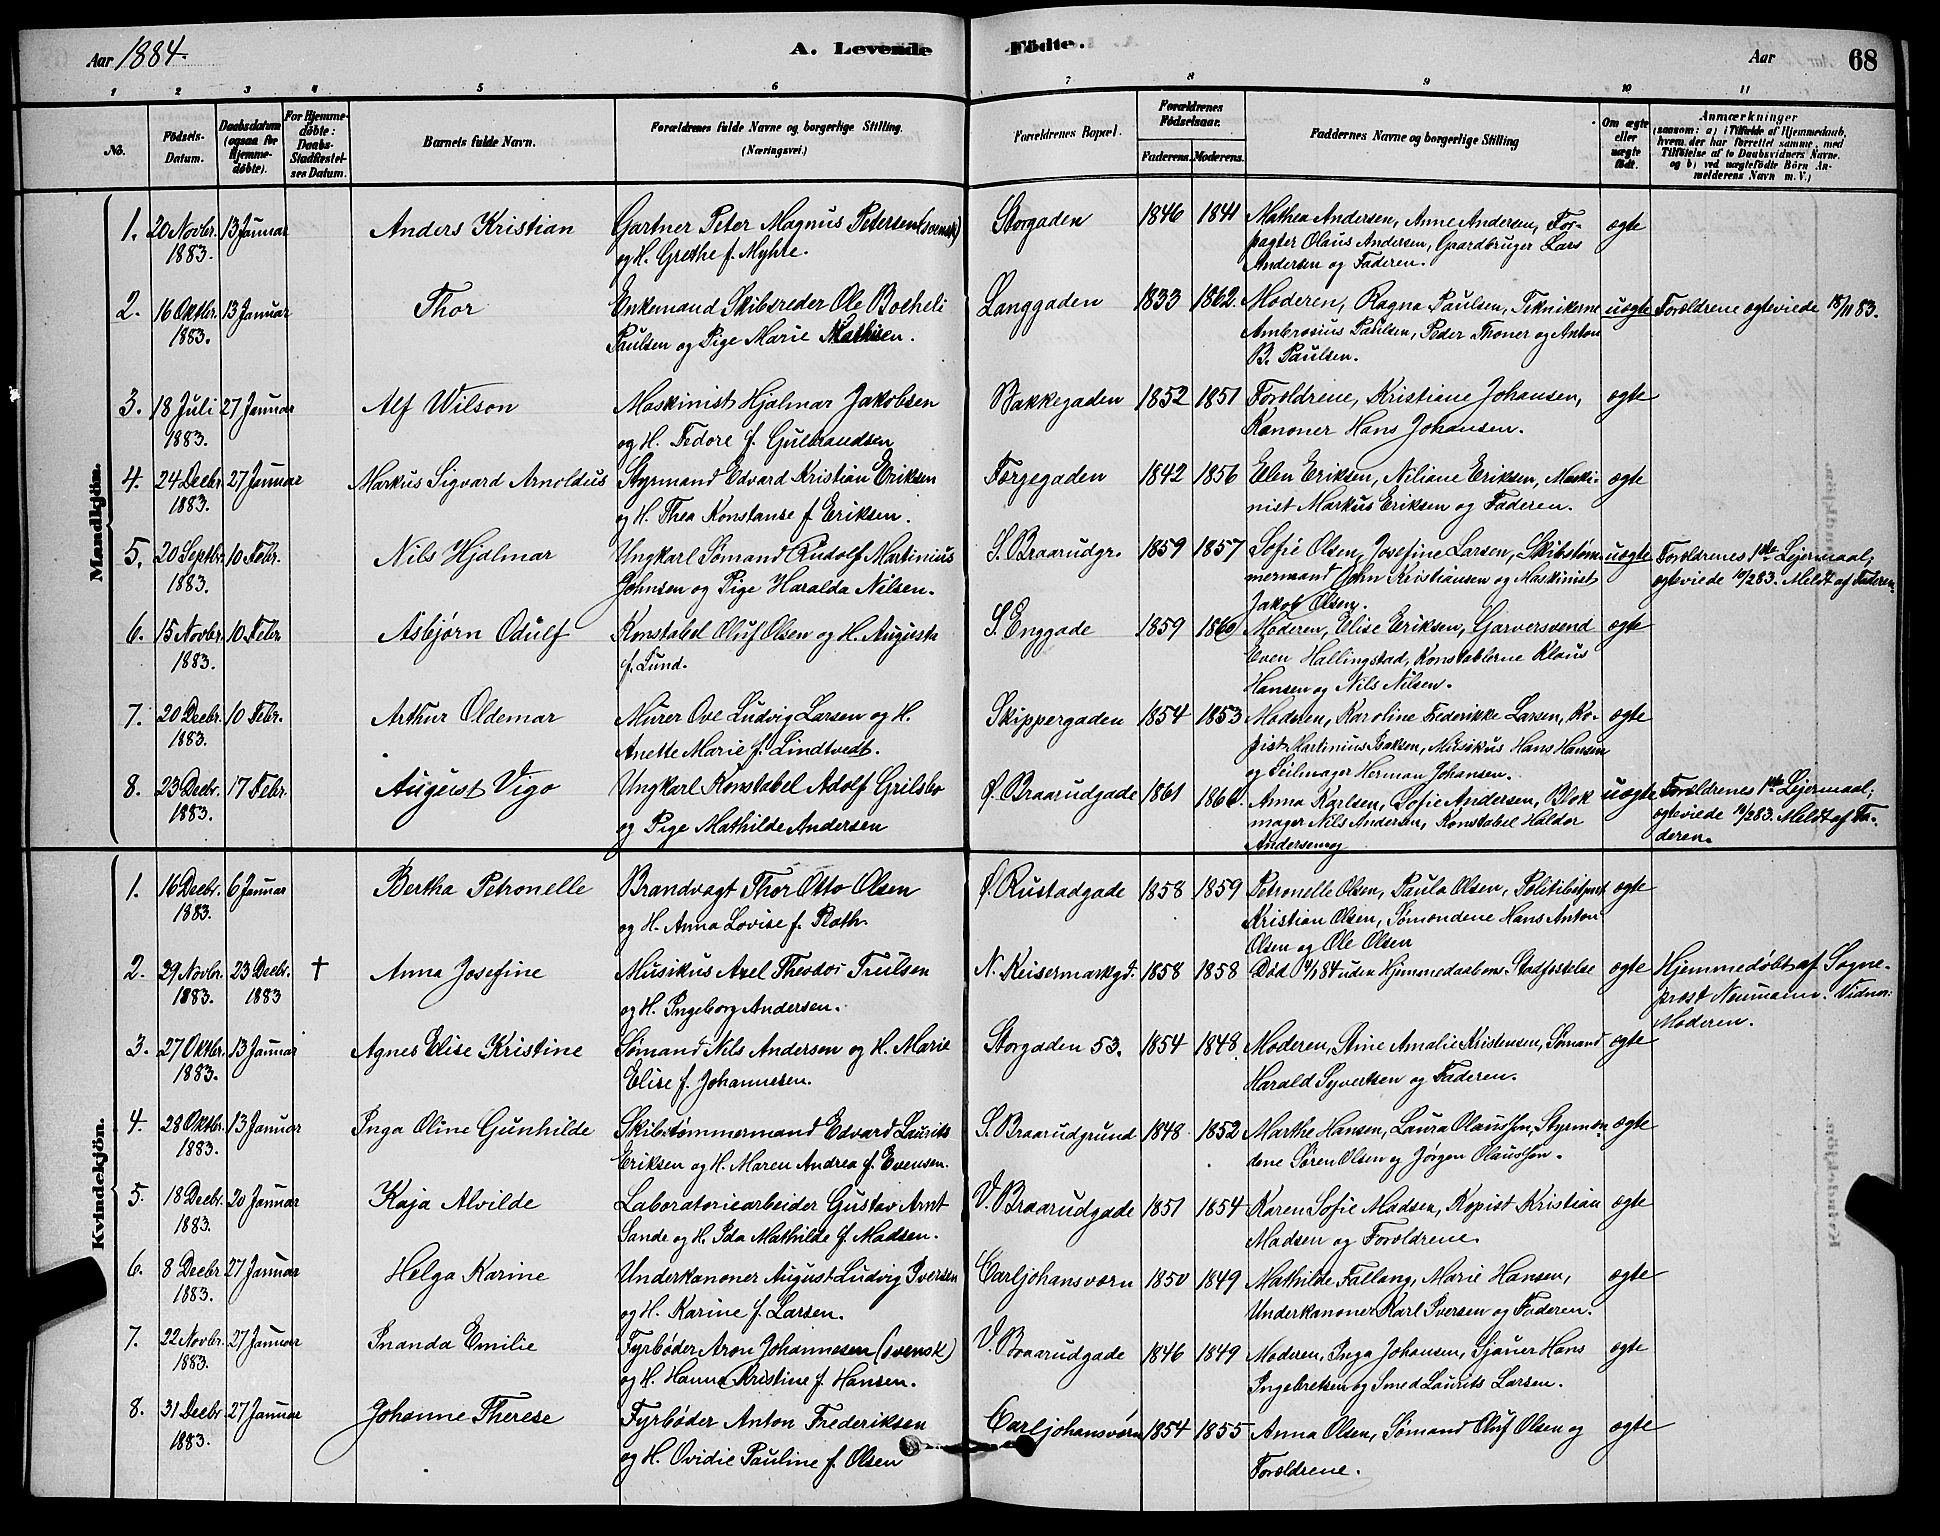 Aar 1884.
A. Levende
Födte.
Aar
68
1 2 3 4 5 6 7 8 9 10 11
No.
Födsels-Datum.
Daabsdatum (ogsaa for Hjemme-döbte).
For Hjemme-döbte: Daabs-Stadfæstel-ses Datum.
Barnets fulde Navn.
Forældrenes fulde Navne og borgerlige Stilling.
(Næringsvei.)
Forældrenes Bopæl.
Forældrenes Födselsaar.
Faderens. Moderens.
Faddernes Navne og borgerlige Stilling
Om ægte eller uægte födt.
Anmærkninger
(saasom: a) i Tilfælde af Hjemmedaab,
hvem der har forrettet samme, med
Tilföielse af to Daabsvidners Navne.
og b) ved uægtefödte Börn An-
melderens Navn m. V.)
Mandkjön.
1. 20 Novbr. 13 Januar Anders Kristian Gartner Peter Magnus Petersen (svensk) Storgaden 1846 1841 Mathea Andersen, Anne Andersen, For- ægte
1883. og H. Grethe f. Myhre. pagter Olaus Andersen, Gaardbruger Lars
Andersen og Faderen.
2. 16 Oktbr. 13 Januar Thor Enkemand Skibsreder Ole Bocheli Langgaden 1833 1862. Moderen, Ragna Paulsen, Teknikerne uægte Forældrene ægteviede 18/11 83.
1883. Paulsen og Pige Marie Mathisen. Ambrosius Paulsen, Peder Thoner og Anton
B. Paulsen.
3. 18 Juli 27 Januar Alf Wilson Maskinist Hjalmar Jakobsen Bakkegaden 1852 1851 Forældrene, Kristiane Johansen, ægte
1883. og H. Fedore f. Gulbrandsen Kanoner Hans Johansen.
4. 24 Decbr. 27 Januar Markus Sigvard Arnoldus Styrmand Edvard Kristian Eriksen Færgegaden 1842 1856 Elen Eriksen, Niliane Eriksen, Maski- ægte
1883. og H. Thea Konstanse f. Eriksen. nist Markus Eriksen og Faderen.
5. 20 Septbr. 10 Febr. Nils Hjalmar Ungkarl Sømand Rudolf Martinius S. Braarudgr. 1859 1857 Sofie Olsen, Josefine Larsen, Skibstøm- uægte Forældrenes 1ste Leiermaal;
1883. Johnsen og Pige Haralda Nilsen. mermand John Kristiansen og Maskinist ægteviede 10/2 83. Meldt af Faderen.
Jakob Olsen.
6. 15 Novbr. 10 Febr. Asbjørn Odulf Konstabel Oluf Olsen og H. Augusta S. Enggade 1859 1860 Moderen, Elise Eriksen, Garversvend ægte
1883. f. Lund. Even Hallingstad, Konstablerne Klaus
Hansen og Nils Nilsen.
7. 20 Decbr. 10 Febr. Arthur Oldemar Murer Ove Ludvig Larsen og H. Skippergaden 1854 1853 Moderen, Karoline Frederikke Larsen, Ko- ægte
1883. Anette Marie f. Lindtvedt. pist Martinius Isaksen, Musikus Hans Hansen
og Seilmager Herman Johansen.
8. 23 Decbr. 17 Febr. August Vigo Ungkarl Konstabel Adolf Grilsbo Ø. Braarudgade 1861 Anna Karlsen, Sofie Andersen, Blok uægte Forældrenes 1ste Leiermaal;
1883. og Pige Mathilde Andersen mager Nils Andersen, Konstabel Haldor ægteviede Meldt af Fa-
Andersen og deren.
Kvindekjön.
1. 16 Decbr. 6 Januar Bertha Petronelle Brandvagt Thor Otto Olsen Ø. Rustadgade 1858 1859 Petronelle Olsen, Paula Olsen, Politibetjent ægte
1883. og H. Anna Lovise f. Rath. Kristian Olsen, Sømændene Hans Anton
Olsen og Ole Olsen
2. 29 Novbr. 23 Decbr. † Anna Josefine Musikus Axel Theodor Trulsen N. Keisermarkgd. 1858 1858 Død uden Hjemmedaabens Stadfæstelse ægte Hjemmedøbt af Sogne-
1883. 1883 og H. Ingeborg Andersen. prest Neumann. Vidner:
Moderen.
3. 27 Oktbr. 13 Januar Agnes Elise Kristine Sømand Nils Andersen og H. Marie Storgaden 53. 1854 1848 Moderen, Stine Amalie Kristensen, Sømand ægte
1883. Elise f. Johannesen. Harald Syvertsen og Faderen.
4. 28 Oktbr. 13 Januar Inga Oline Gunhilde Skibstømmermand Edvard Laurits S. Braarudgrund 1848 1852 Marthe Hansen, Laura Olaussen, Styrmæn- ægte
1883. Eriksen og H. Maren Andrea f. Evensen. dene Søren Olsen og Jørgen Olaussen.
5. 18 Decbr. 20 Januar Kaja Alvilde Laboratoriearbeider Gustav Arnt V. Braarudgade 1851 1854 Karen Sofie Madsen, Kopist Kristian ægte
1883. Sande og H. Ida Mathilde f. Madsen. Madsen og Forældrene.
6. 8 Decbr. 27 Januar Helga Karine Underkanoner August Ludvig Iversen Carljohansværn 1850 1849 Mathilde Fallang, Marie Hansen, ægte
1883. og H. Karine f. Larsen. Underkanoner Karl Iversen og Faderen.
7. 22 Novbr. 27 Januar Inanda Emilie Fyrbøder Aron Johannesen (svensk) V. Braarudgade 1846 1849 Moderen, Inga Johansen, Sjauer Hans ægte
1883. og H. Hanna Kristine f. Hansen. Ingebretsen og Smed Laurits Larsen.
8. 31 Decbr. 27 Januar Johanne Therese Fyrbøder Anton Frederiksen Carljohansværn 1854 1855 Anna Olsen, Sømand Oluf Olsen og ægte
1883. og H. Ovidie Pauline f. Olsen Forældrene.